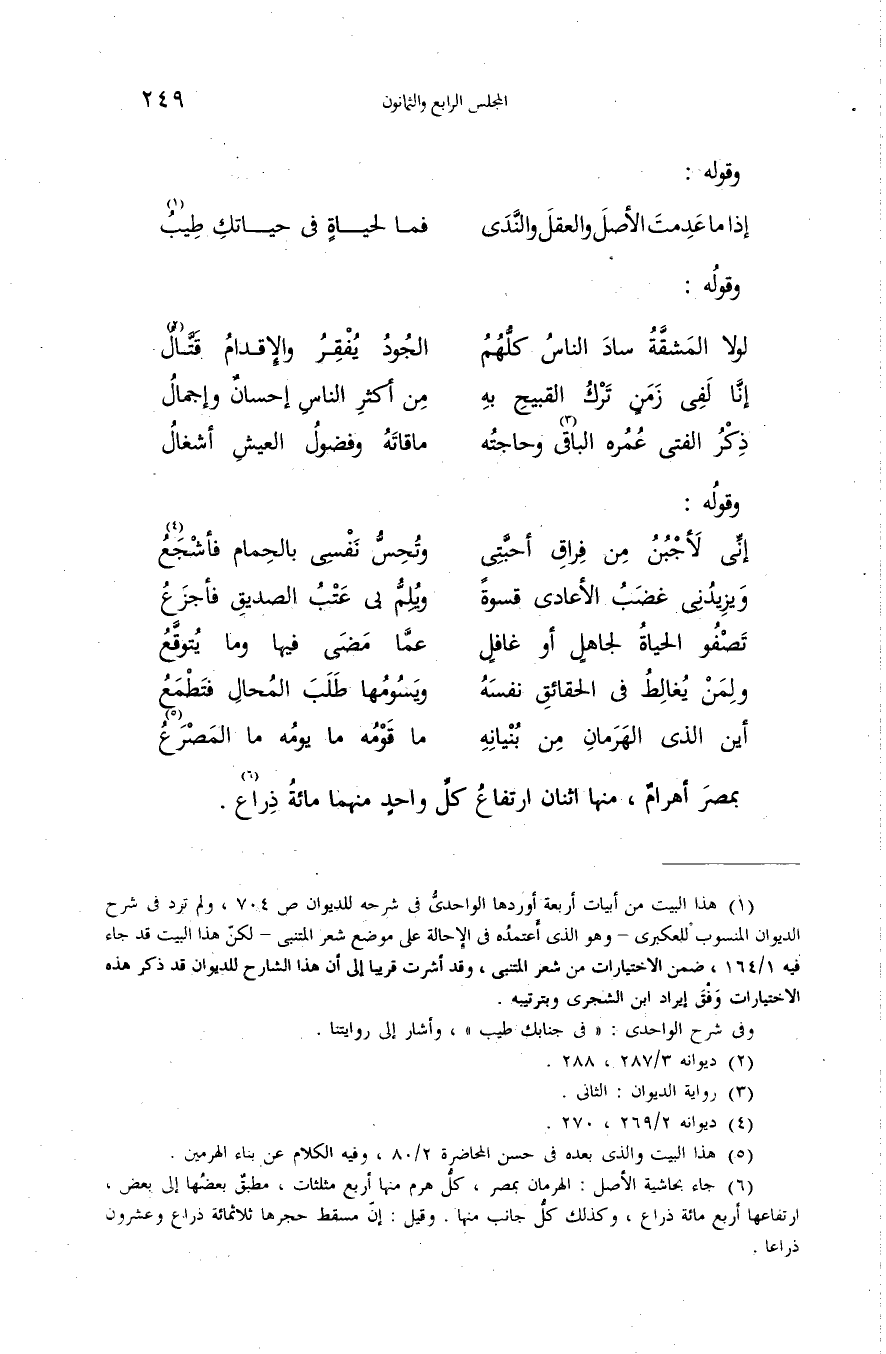 المجلس الرابع والثمانون ٢٤٩
وقوله :
إذا ما عَدِمتَ الأصلَ والعقلَ والنَّدَى فمـا لحيـــاةٍ فى حيـــاتكِ طِيبُ(١)
وقولُه :
لولا المَشقَّةُ سادَ الناسُ كلُّهُمُ الجُودُ يُفْقِـرُ والإقـدامُ قَتَّـالُ(٢)
إنَّا لَفِى زَمَنٍ تَرْكُ القبيحِ بهِ مِن أكثرِ الناسِ إحسانٌ وإجمالُ
ذِكْرُ الفتى عُمُره الباقى(٣) وحاجتُه ماقاتَهُ وفضولُ العيشِ أشغالُ
وقولُه :
إنِّى لَأجْبُنُ مِن فِراقِ أحبَّتِى وتُحِسُّ نَفْسِى بالحِمام فأشْجَعُ(٤)
وَيزِيدُنِى غضَبُ الأعادى قسوةً ويُلِمُّ بى عَتْبُ الصديقِ فأجزَعُ
تَصْفُو الحياةُ لجاهلٍ أو غافلٍ عمَّا مَضَى فيها وما يُتوقَّعُ
ولِمَنْ يُغالِطُ فى الحقائقِ نفسَهُ ويَسُومُها طَلَبَ المُحالِ فتَطْمَعُ
أين الذى الهَرَمانِ مِن بُنْيانِهِ ما قَوْمُه ما يومُه ما المَصْرَعُ(٥)
بمصرَ أهرامٌ ، منها اثنان ارتفاعُ كلِّ واحدٍ منهما مائةُ ذِراع(٦) .
(١) هذا البيت من أبيات أربعة أوردها الواحدىُّ فى شرحه للديوان ص ٧٠٤ ، ولم ترد فى شرح
الديوان المنسوب للعكبرى – وهو الذى أعتمدُه فى الإحالة على موضع شعر المتنبى – لكنّ هذا البيت قد جاء
فيه ١٦٤/١ ، ضمن الاختيارات من شعر المتنبى ، وقد أشرت قريبا إلى أن هذا الشارح للديوان قد ذكر هذه
الاختيارات وَفْقَ إيراد ابن الشجرى وبترتيبه .
وفى شرح الواحدى : « فى جنابك طيب » ، وأشار إلى روايتنا .
(٢) ديوانه ٢٨٧/٣ ، ٢٨٨ .
(٣) رواية الديوان : الثانى .
(٤) ديوانه ٢٦٩/٢ ، ٢٧٠ .
(٥) هذا البيت والذى بعده فى حسن المحاضرة ٨٠/٢ ، وفيه الكلام عن بناء الهرمين .
(٦) جاء بحاشية الأصل : الهرمان بمصر ، كلُّ هرم منها أربع مثلثات ، مطبقٌ بعضُها إلى بعض ،
ارتفاعها أربع مائة ذراع ، وكذلك كلُّ جانب منها . وقيل : إنّ مسقط حجرها ثلاثمائة ذراع وعشرون
ذراعا .